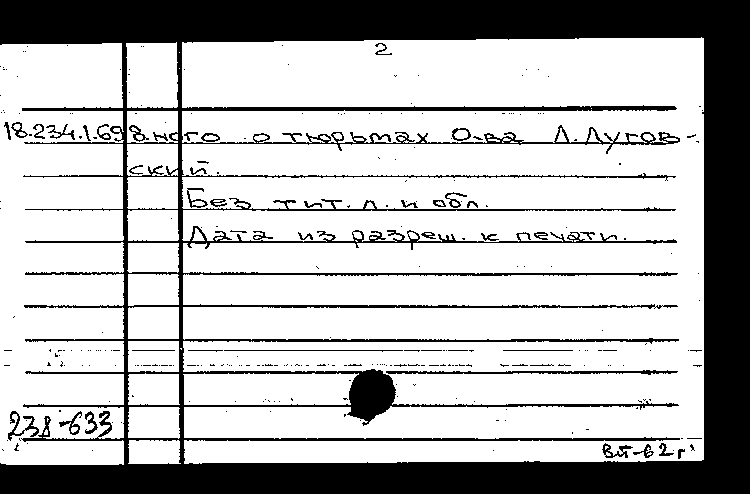 2
18.234.1.698.ного о тюрьмах О-ва Л.Лугов-
ский.
Без тит. л. и обл.
Дата из разреш. к печати.
238-633
вт-62г